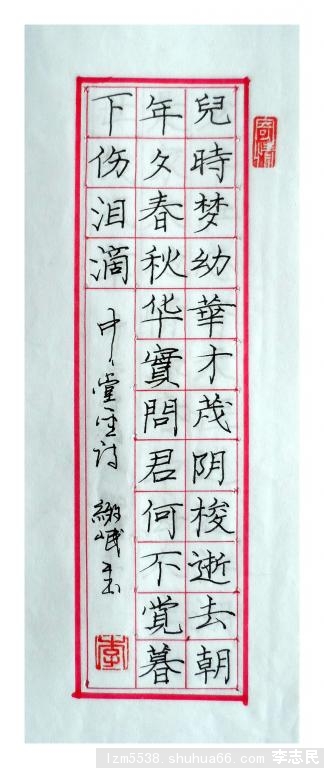 兒時梦幼華才茂阴梭逝去朝
年夕春秋华實問君何不覚暮
下伤泪滴
寄情
李
lzm5538.shuhua66.com 李志民